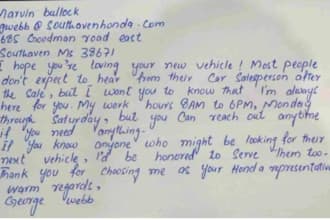 Marvin bullock
gwebb@southavenhonda.com
685 Goodman road east
Southaven Ms 38671
I hope you're loving your new vehicle! Most people
don't expect to hear from their Car Salesperson after
the sale, but I want you to know that I'm always
here for you. My work hours 8AM to 6PM, Monday
through Saturday, but you can reach out anytime
if you need anything.
if you know anyone who might be looking for their
next vehicle, I'd be honored to serve them too.
Thank you for choosing me as your Honda representative
warm regards,
George webb